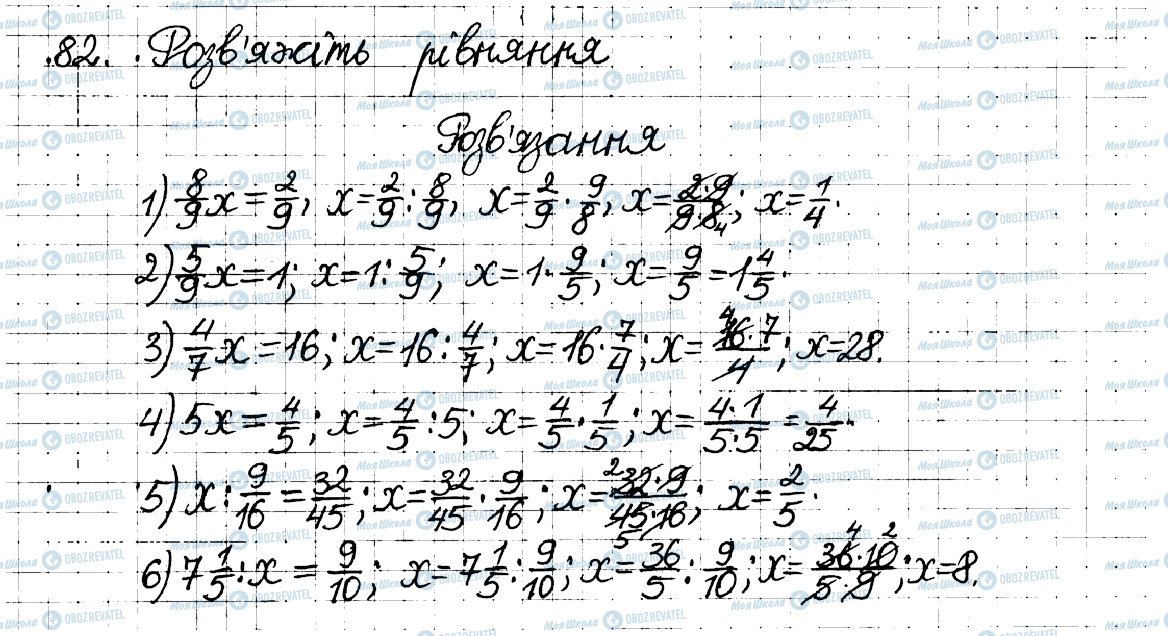 82. Розв'яжіть рівняння
Розв'язання
1) 8/9 x = 2/9; x = 2/9 : 8/9; x = 2/9 · 9/8; x = 2·9/9·8 4; x = 1/4.
2) 5/9 x = 1; x = 1 : 5/9; x = 1 · 9/5; x = 9/5 = 1 4/5.
3) 4/7 x = 16; x = 16 : 4/7; x = 16 · 7/4; x = 4 16·7/4; x = 28.
4) 5x = 4/5; x = 4/5 : 5; x = 4/5 · 1/5; x = 4·1/5·5 = 4/25.
5) x : 9/16 = 32/45; x = 32/45 · 9/16; x = 2 32·9/45·16 5; x = 2/5.
6) 7 1/5 : x = 9/10; x = 7 1/5 : 9/10; x = 36/5 : 9/10; x = 4 2 36·10/5·9; x = 8.
МояШкола OBOZREVATEL